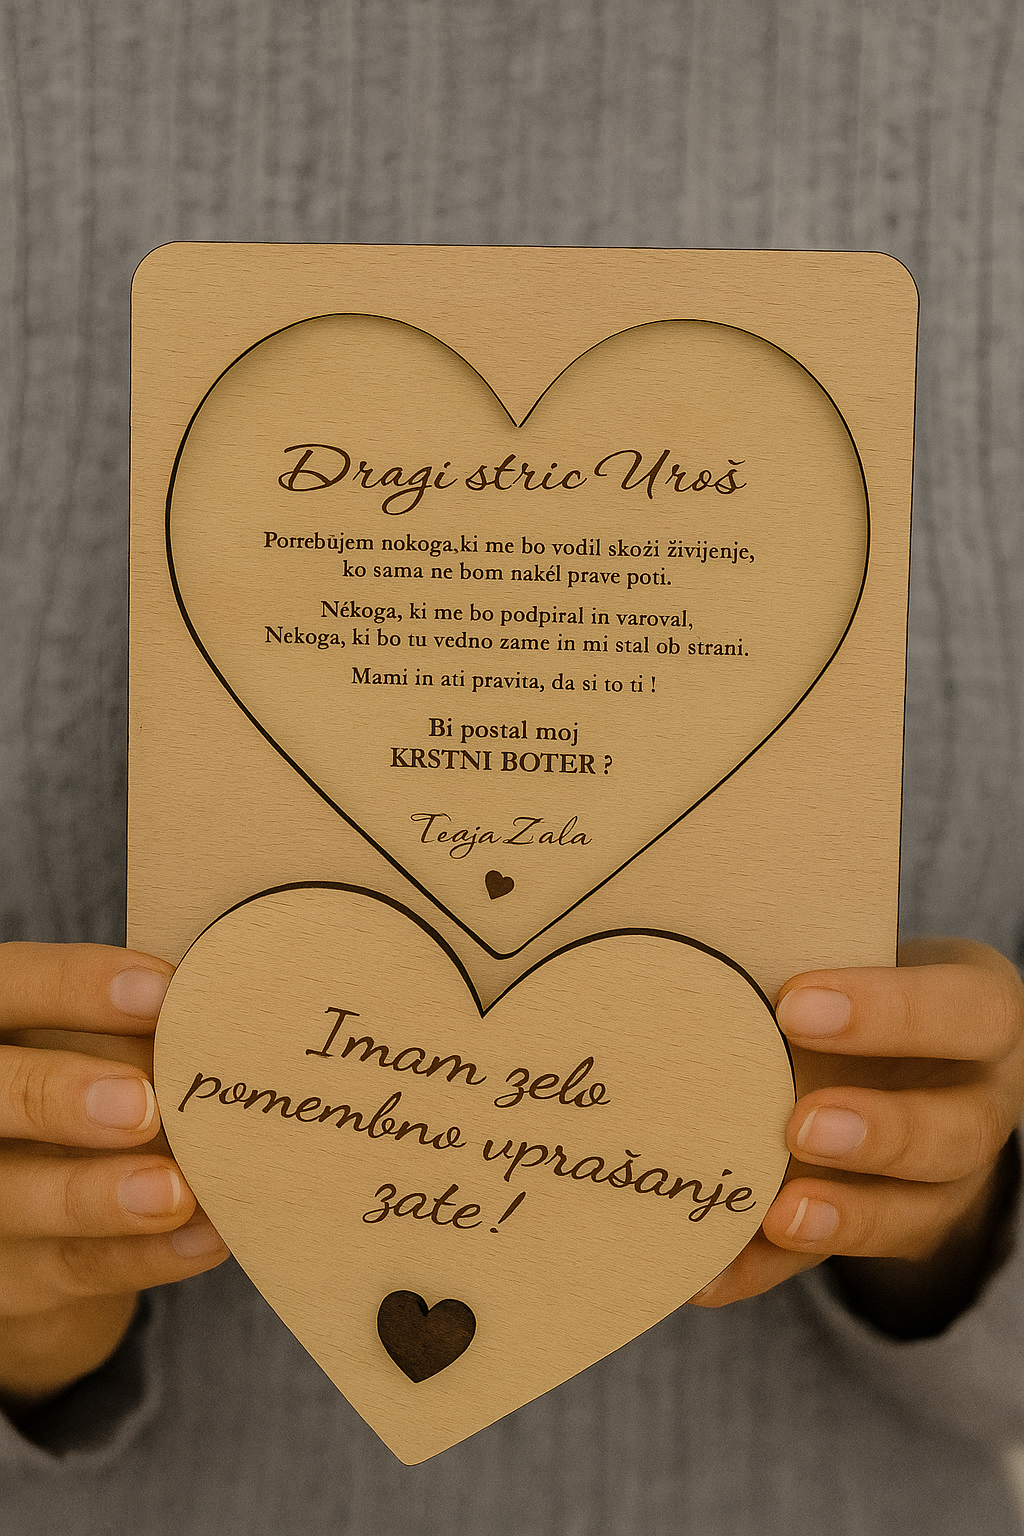 Dragi stric Uroš
Porrebūjem nokoga,ki me bo vodil skożi živijenje,
ko sama ne bom nakél prave poti.
Nékoga, ki me bo podpiral in varoval,
Nekoga, ki bo tu vedno zame in mi stal ob strani.
Mami in ati pravita, da si to ti !
Bi postal moj
KRSTNI BOTER ?
Teaja Zala
Imam zelo
pomembno vprašanje
zate!